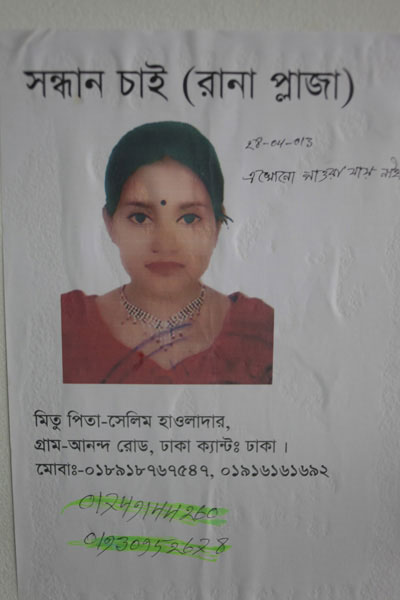 সন্ধান চাই (রানা প্লাজা)
২৪-০৪-০১৩
এখোনো পাওয়া যায় নাই
মিতু পিতা-সেলিম হাওলাদার,
গ্রাম-আনন্দ রোড, ঢাকা ক্যান্টঃ ঢাকা ।
মোবাঃ-০১৮৯১৮৭৬৭৫৪৭, ০১৯১৬১৬১৬৯২